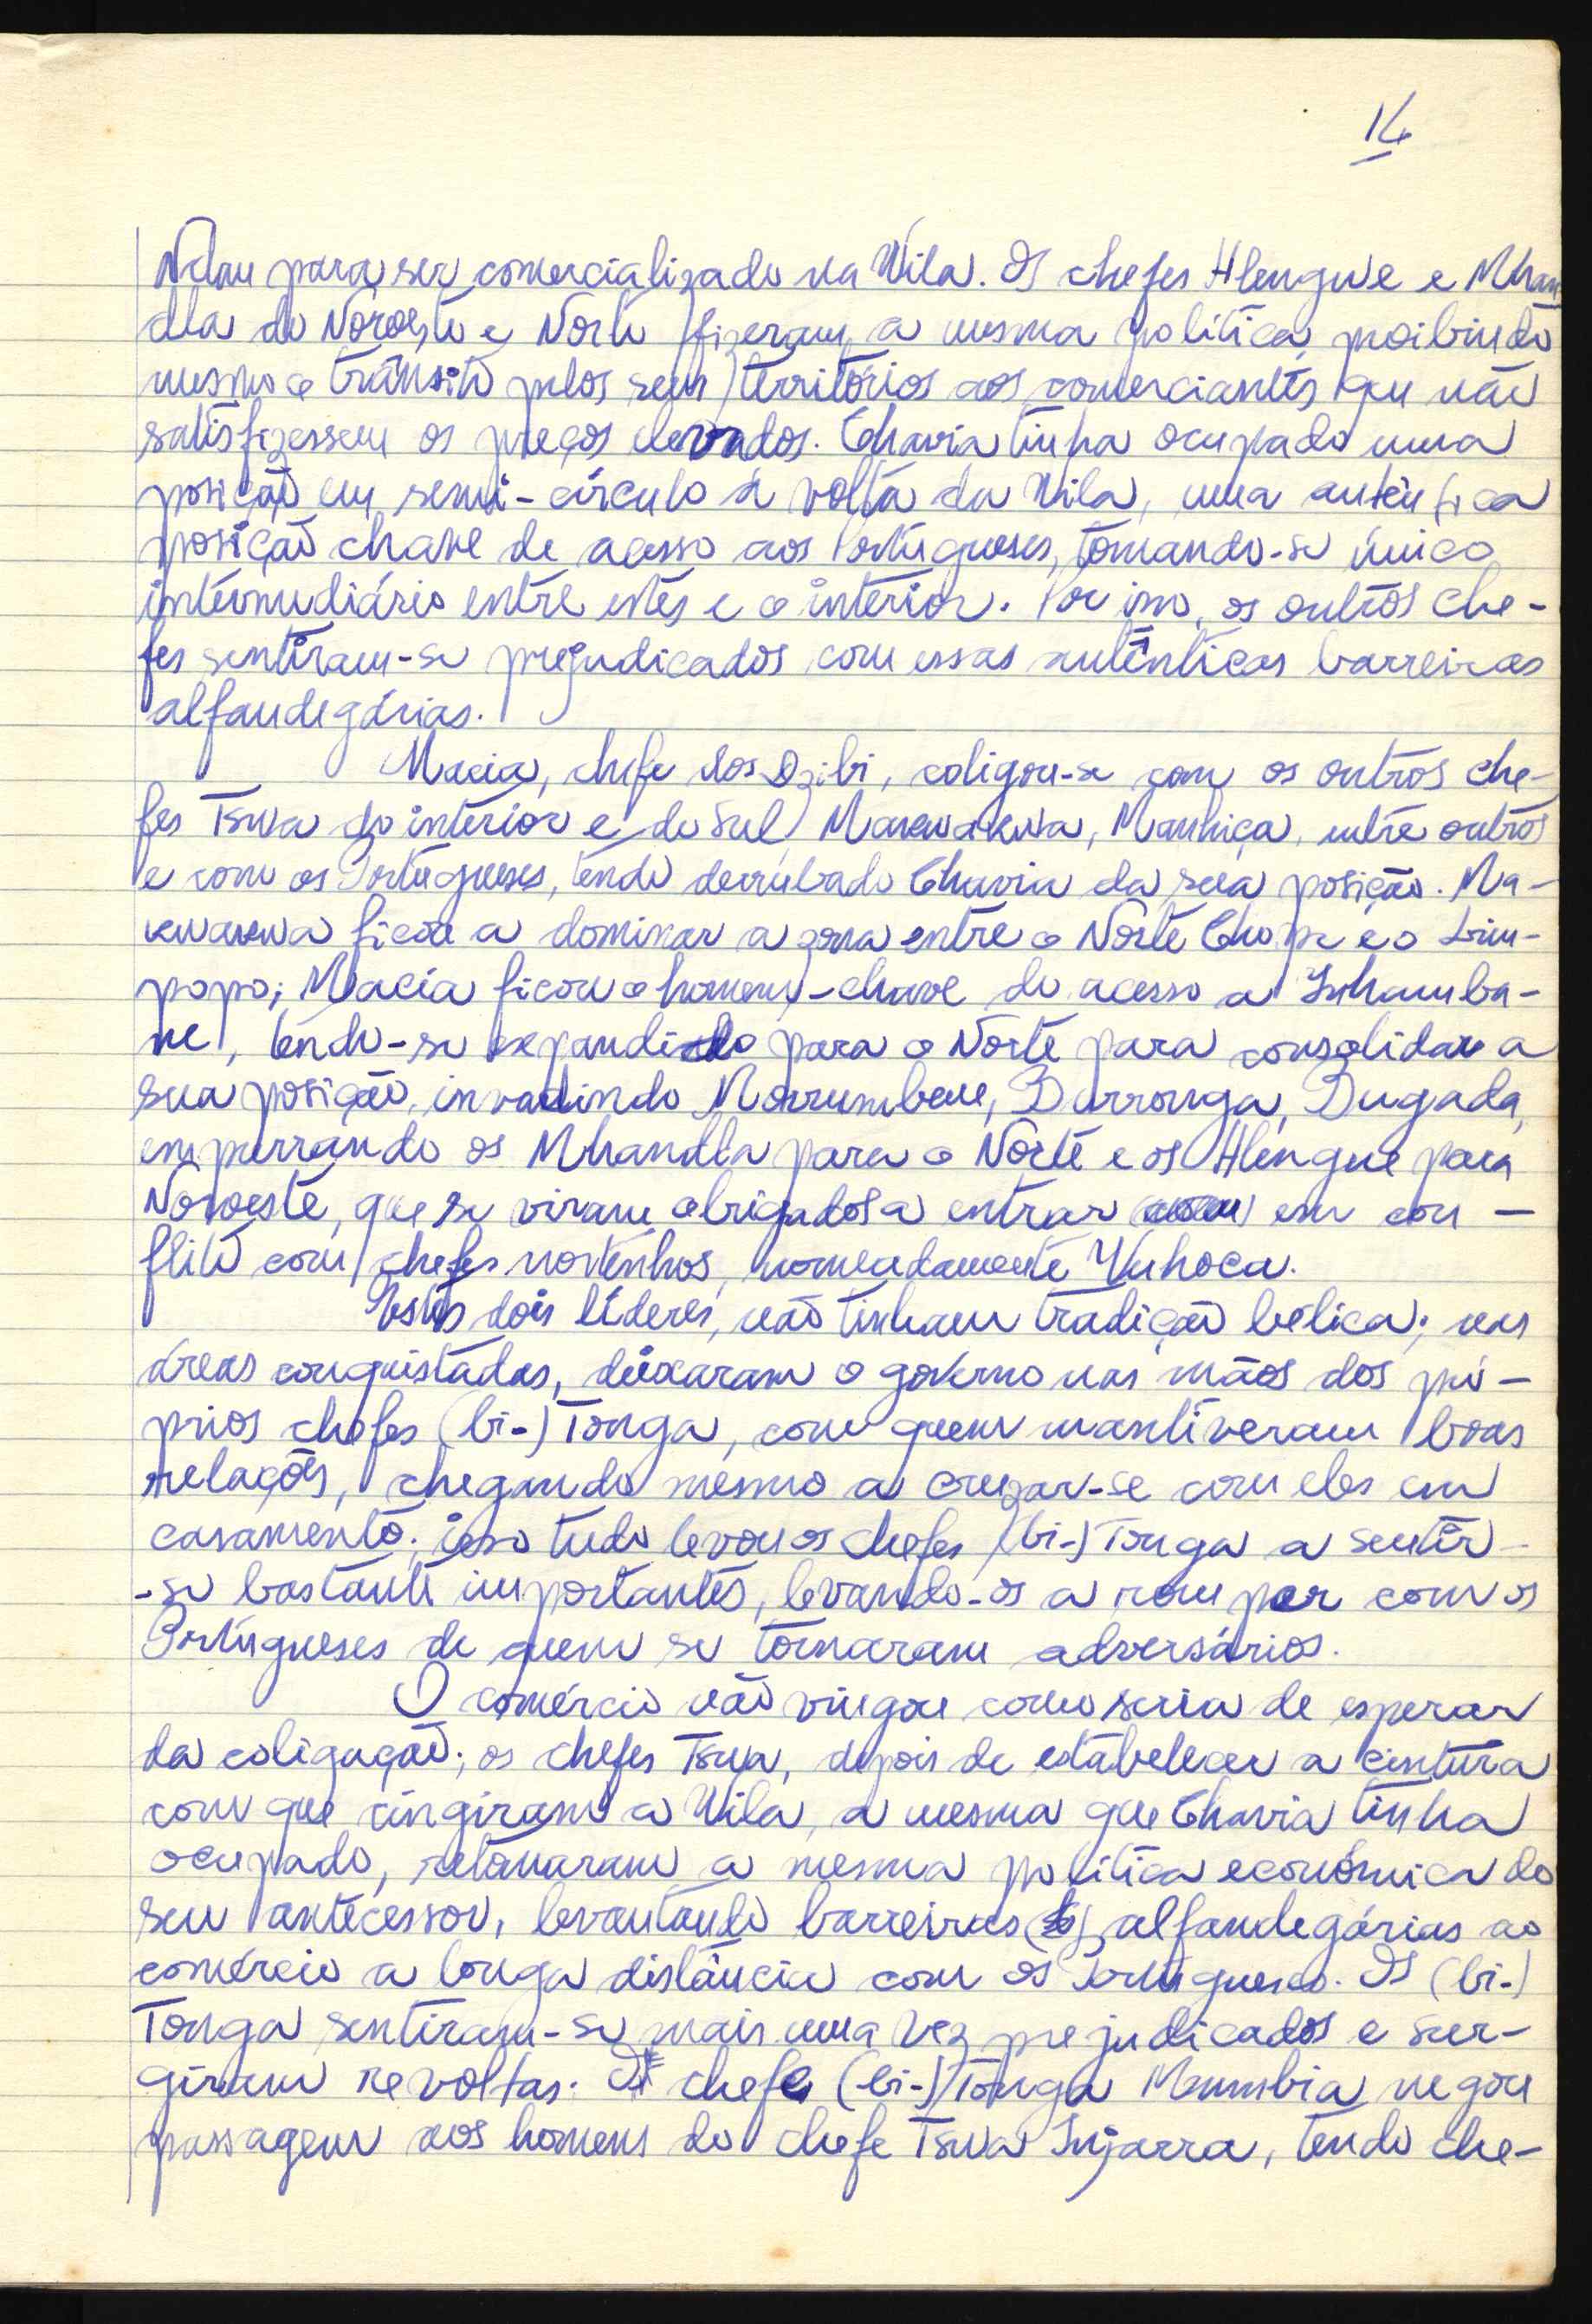 16
Ndau para ser comercializado na Vila. Os chefes Hlengwe e Mhan
dla do Noroeste e Norte fizeram a mesma política, proibindo
mesmo o trânsito pelos seus territórios aos comerciantes que não
satisfizessem os preços elevados. Chavia tinha ocupado uma
posição em semi-círculo à volta da Vila, uma autêntica
posição chave de acesso aos Portugueses, tornando-se único
intermediário entre estes e o interior. Por isso, os outros che-
fes sentiram-se prejudicados com essas autênticas barreiras
alfandegárias.
Macia, chefe dos Dzibi, coligou-se com os outros che-
fes Tswa do interior e do Sul, Makwakwa, Manhiça, entre outros
e com os Portugueses, tendo derrubado Chavia da sua posição. Ma-
kwakwa ficou a dominar a zona entre o Norte Chope e o Lim-
popo; Macia ficou o homem-chave do acesso a Inhamba-
ne, tendo-se expandido para o Norte para consolidar a
sua posição, invadindo Morrumbene, Burronga, Bugada,
empurrando os Mhandla para o Norte e os Hlengue para
Noroeste, que se viram obrigados a entrar em con-
flito com chefes nortenhos, nomeadamente Yuhoca.
Estes dois líderes, não tinham tradição bélica; nas
áreas conquistadas, deixaram o governo nas mãos dos pró-
prios chefes (bi-) Tonga, com quem mantiveram boas
relações, chegando mesmo a cruzar-se com eles em
casamento; isso tudo levou os chefes (bi-) Tonga a sentir-
-se bastante importantes, levando-os a romper com os
Portugueses de quem se tornaram adversários.
O comércio não vingou como seria de esperar
da coligação; os chefes Tswa, depois de estabelecer a cintura
com que cingiram a Vila, a mesma que Chavia tinha
ocupado, retomaram a mesma política económica do
seu antecessor, levantando barreiras alfandegárias ao
comércio a longa distância com os Portugueses. Os (bi-)
Tonga sentiram-se mais uma vez prejudicados e sur-
giram revoltas. O chefe (bi-) Tonga Mumbia negou
passagem aos homens do chefe Tswa Injarra, tendo che-